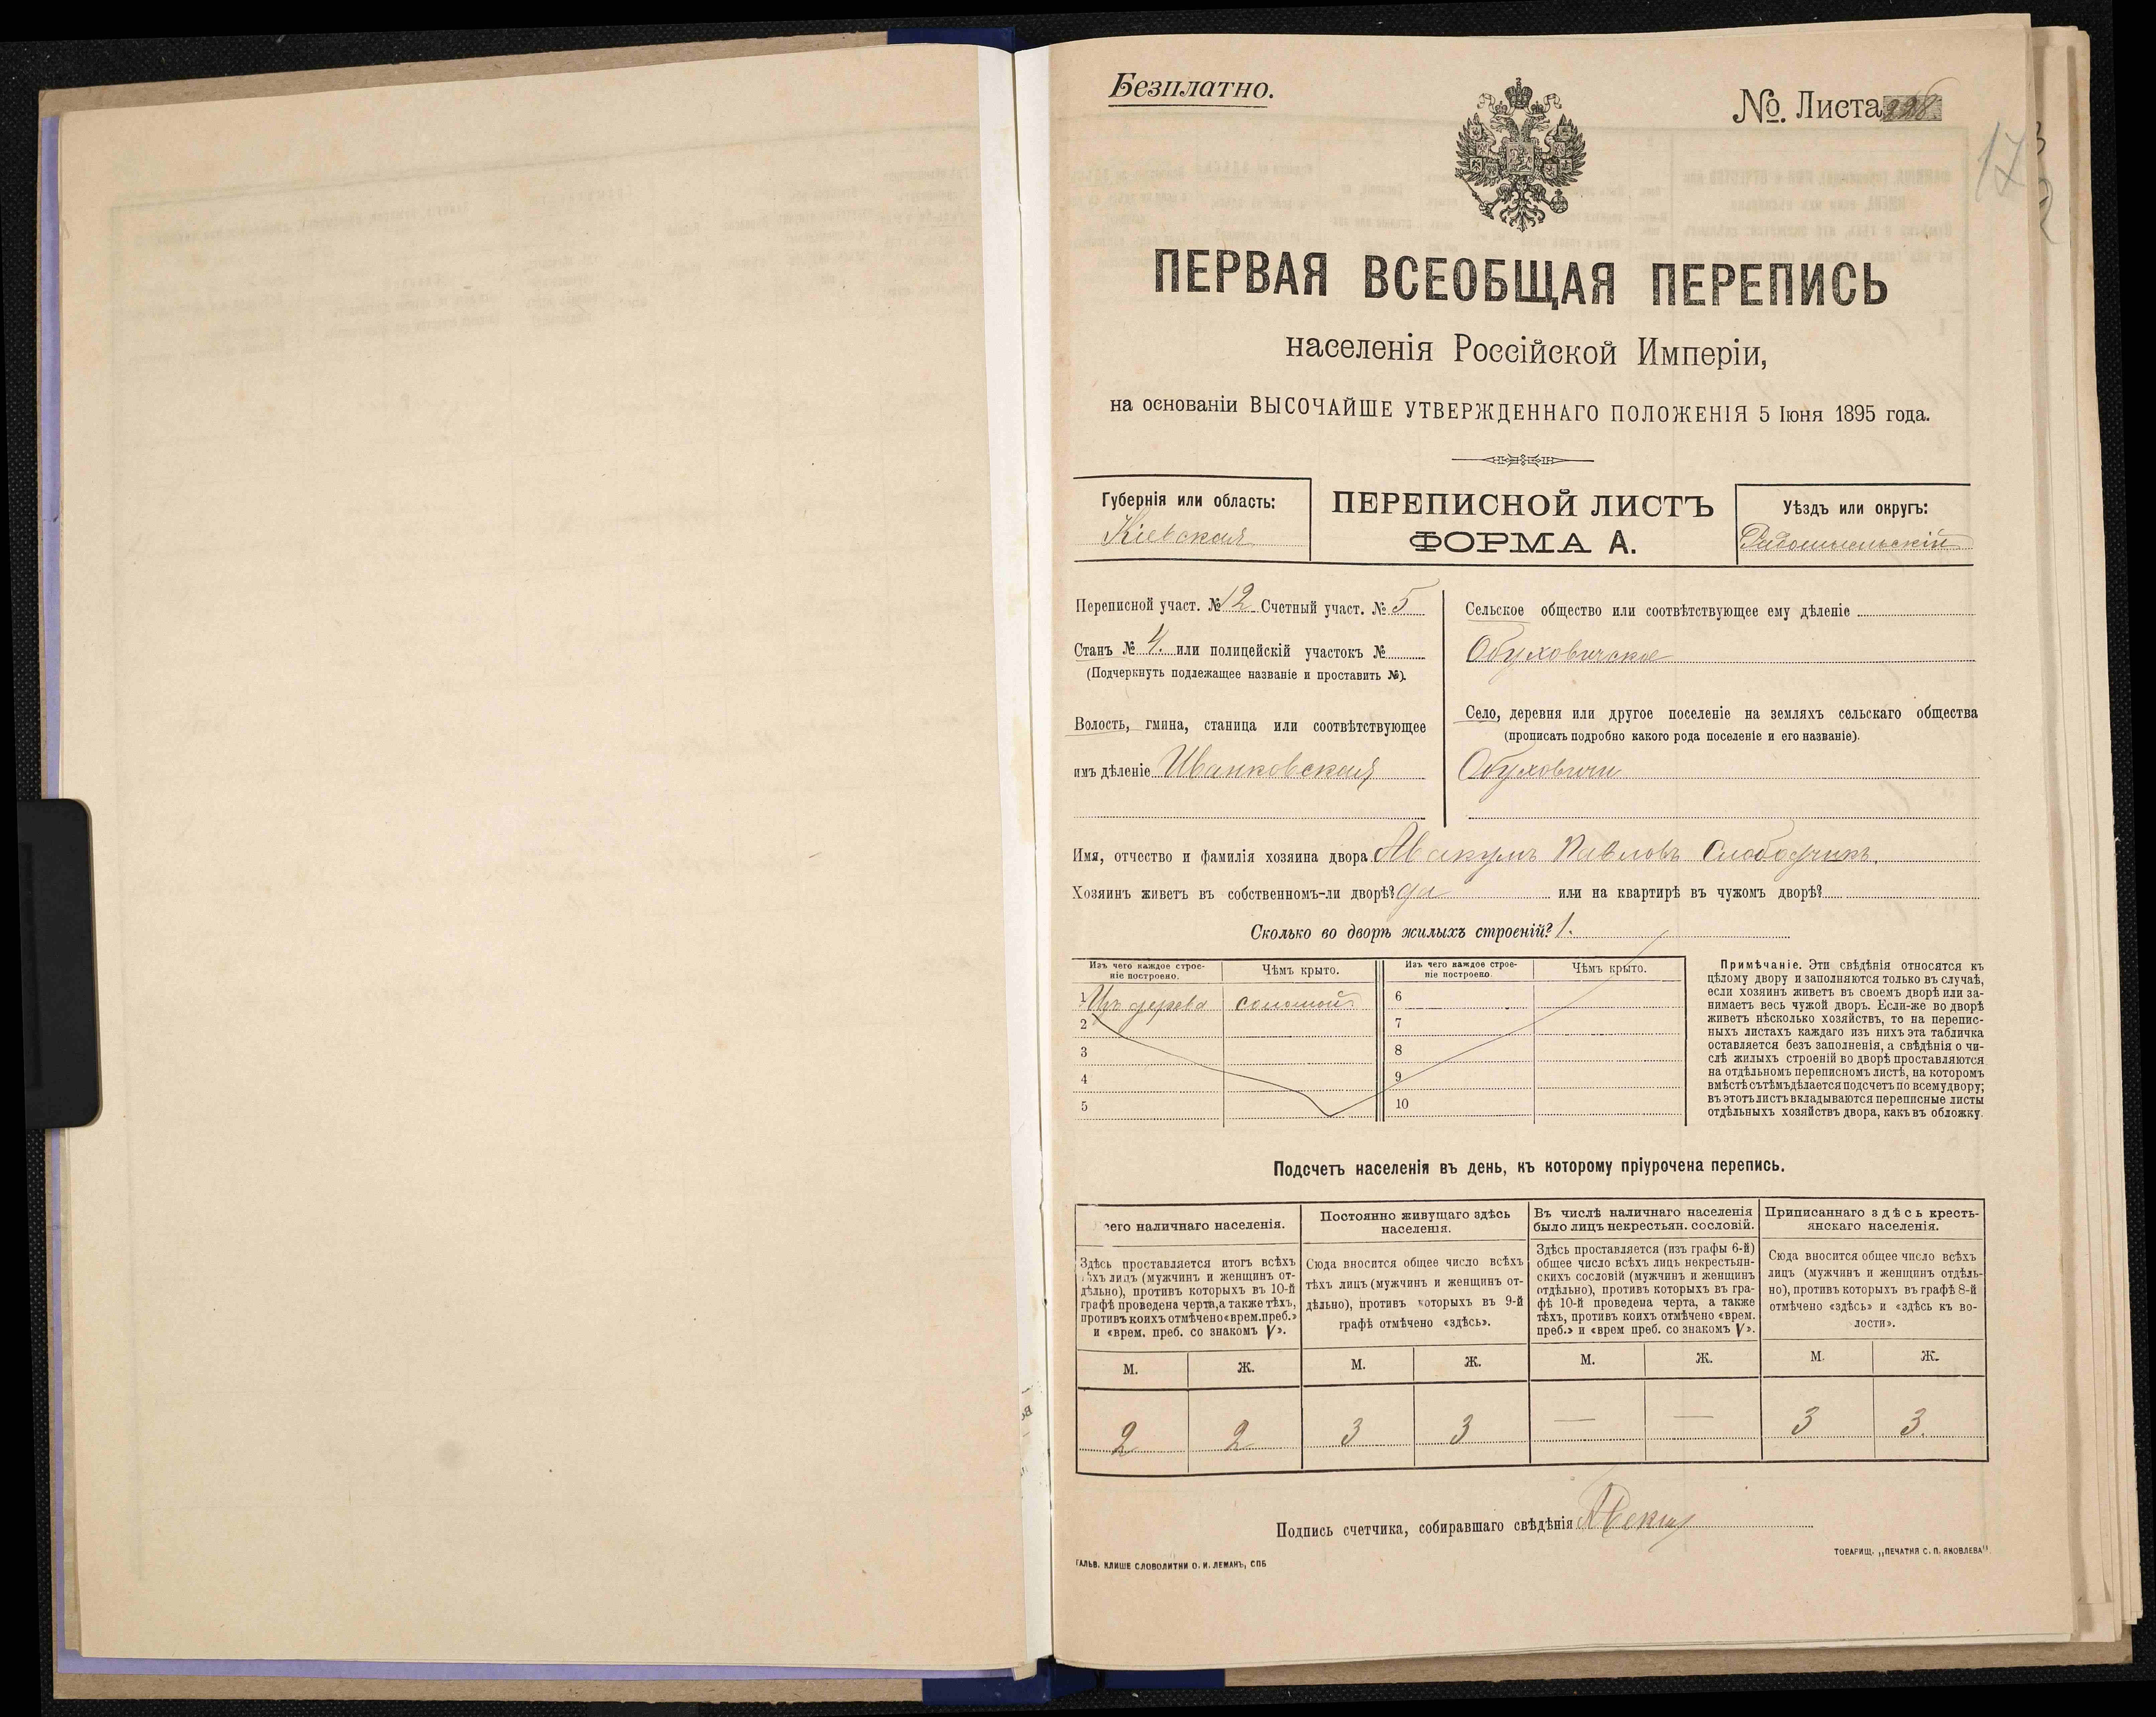 Безплатно.
№. Листа 228
17
ПЕРВАЯ ВСЕОБЩАЯ ПЕРЕПИСЬ
населенія Россійской Имперіи,
на основаніи ВЫСОЧАЙШЕ УТВЕРЖДЕННАГО ПОЛОЖЕНІЯ 5 Іюня 1895 года.
Губернія или область:
Кіевская
ПЕРЕПИСНОЙ ЛИСТЪ
ФОРМА А.
Уѣздъ или округъ:
Радомысльскій
Переписной участ. № 12 Счетный участ. № 5
Станъ № 4. или полицейскій участокъ №
(Подчеркнуть подлежащее названіе и проставить №).
Волость, гмина, станица или соотвѣтствующее
имъ дѣленіе Иванковская
Сельское общество или соотвѣтствующее ему дѣленіе
Обуховичское
Село, деревня или другое поселеніе на земляхъ сельскаго общества
(прописать подробно какого рода поселеніе и его названіе).
Обуховичи
Имя, отчество и фамилія хозяина двора Авакумъ Павловъ Слободчикъ.
Хозяинъ живетъ въ собственномъ-ли дворѣ? да или на квартирѣ въ чужомъ дворѣ?
Сколько во дворѣ жилыхъ строеній? 1.
Изъ чего каждое строе-
ніе построено.
Чѣмъ крыто.
Изъ чего каждое строе-
ніе построено.
Чѣмъ крыто.
1 Изъ дерева соломой
2
3
4
5
6
7
8
9
10
Примѣчаніе. Эти свѣдѣнія относятся къ
цѣлому двору и заполняются только въ случаѣ,
если хозяинъ живетъ въ своемъ дворѣ или за-
нимаетъ весь чужой дворъ. Если-же во дворѣ
живетъ нѣсколько хозяйствъ, то на перепис-
ныхъ листахъ каждаго изъ нихъ эта табличка
оставляется безъ заполненія, а свѣдѣнія о чи-
слѣ жилыхъ строеній во дворѣ проставляются
на отдѣльномъ переписномъ листѣ, на которомъ
вмѣстѣ съ тѣмъ дѣлается подсчетъ по всему двору;
въ этотъ листъ вкладываются переписные листы
отдѣльныхъ хозяйствъ двора, какъ въ обложку.
Подсчетъ населенія въ день, къ которому пріурочена перепись.
сего наличнаго населенія.
Здѣсь проставляется итогъ всѣхъ
тѣхъ лицъ (мужчинъ и женщинъ от-
дѣльно), противъ которыхъ въ 10-й
графѣ проведена черта, а также тѣхъ,
противъ коихъ отмѣчено «врем. преб.»
и «врем. преб. со знакомъ V».
Постоянно живущаго здѣсь
населенія.
Сюда вносится общее число всѣхъ
тѣхъ лицъ (мужчинъ и женщинъ от-
дѣльно), противъ которыхъ въ 9-й
графѣ отмѣчено «здѣсь».
Въ числѣ наличнаго населенія
было лицъ некрестьян. сословій.
Здѣсь проставляется (изъ графы 6-й)
общее число всѣхъ лицъ некрестьян-
скихъ сословій (мужчинъ и женщинъ
отдѣльно), противъ которыхъ въ гра-
фѣ 10-й проведена черта, а также
тѣхъ, противъ коихъ отмѣчено «врем.
преб.» и «врем преб. со знакомъ V».
Приписаннаго здѣсь кресть-
янскаго населенія.
Сюда вносится общее число всѣхъ
лицъ (мужчинъ и женщинъ отдѣль-
но), противъ которыхъ въ графѣ 8-й
отмѣчено «здѣсь» и «здѣсь къ во-
лости».
М. Ж. М. Ж. М. Ж. М. Ж.
2 2 3 3 — — 3 3.
Подпись счетчика, собиравшаго свѣдѣнія
ГАЛЬВ. КЛИШЕ СЛОВОЛИТНИ О. И. ЛЕМАНЪ, СПБ
ТОВАРИЩ. „ПЕЧАТНЯ С. П. ЯКОВЛЕВА"